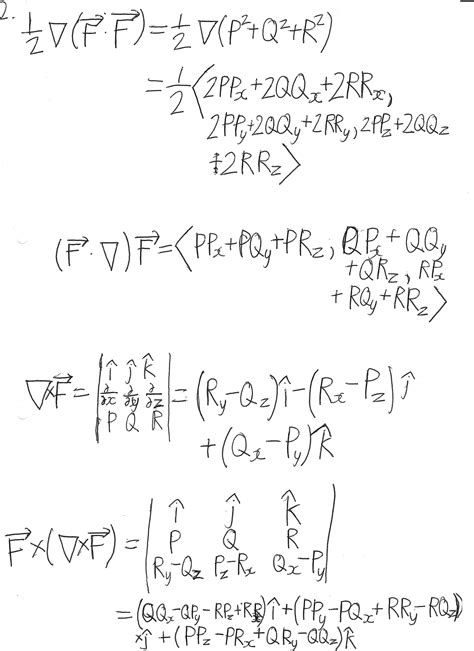 2.
½∇(F⃗·F⃗) = ½∇(P²+Q²+R²)
= ½⟨2PPₓ+2QQₓ+2RRₓ,
2PP_y+2QQ_y+2RR_y, 2PP_z+2QQ_z
+2RR_z⟩
(F⃗·∇)F⃗ = ⟨PPₓ+PQ_y+PR_z, QPₓ+QQ_y
+QR_z, RPₓ
+RQ_y+RR_z⟩
∇×F⃗ = |î ĵ k̂| = (R_y−Q_z)î−(Rₓ−P_z)ĵ
|∂/∂x ∂/∂y ∂/∂z|
|P Q R|
+(Qₓ−P_y)k̂
F⃗×(∇×F⃗) = |î ĵ k̂|
|P Q R|
|R_y−Q_z P_z−Rₓ Qₓ−P_y|
= (QQₓ−QP_y−RP_z+RRₓ)î+(PP_y−PQₓ+RR_y−RQ_z)
×ĵ+(PP_z−PRₓ+QR_y−QQ_z)k̂